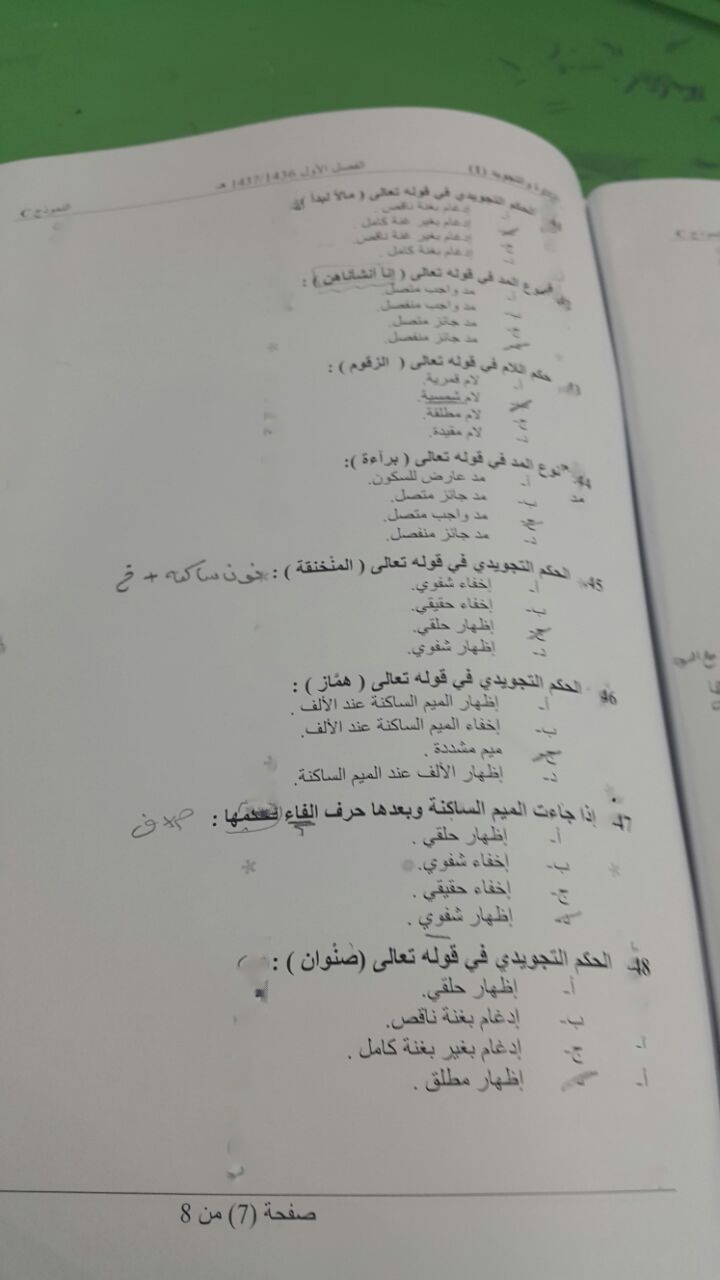 التلاوة والتجويد (1) الفصل الأول 1437/1436 هـ النموذج C
41. الحكم التجويدي في قوله تعالى ( مالاً لبدا )
أ- إدغام بغنة ناقص.
ب- إدغام بغير غنة كامل.
ج- إدغام بغير غنة ناقص.
د- إدغام بغنة كامل.
نوع المد في قوله تعالى ( إنا أنشأناهن ) :
أ- مد واجب متصل.
ب- مد واجب منفصل.
ج- مد جائز متصل.
د- مد جائز منفصل.
43. حكم اللام في قوله تعالى ( الزقوم ) :
أ- لام قمرية.
ب- لام شمسية.
ج- لام مطلقة.
د- لام مقيدة.
44. نوع المد في قوله تعالى ( برآءة ):
أ- مد عارض للسكون. مد
ب- مد جائز متصل.
ج- مد واجب متصل.
د- مد جائز منفصل.
45. الحكم التجويدي في قوله تعالى ( المنْخنقة ) : نون ساكنه + خ
أ- إخفاء شفوي.
ب- إخفاء حقيقي.
ج- إظهار حلقي.
د- إظهار شفوي.
46. الحكم التجويدي في قوله تعالى ( همَّاز ) :
أ- إظهار الميم الساكنة عند الألف .
ب- إخفاء الميم الساكنة عند الألف.
ج- ميم مشددة .
د- إظهار الألف عند الميم الساكنة.
47. إذا جاءت الميم الساكنة وبعدها حرف الفاء فحكمها :
أ- إظهار حلقي .
ب- إخفاء شفوي.
ج- إخفاء حقيقي .
د- إظهار شفوي .
48. الحكم التجويدي في قوله تعالى (صنْوان ) :
أ- إظهار حلقي.
ب- إدغام بغنة ناقص.
ج- إدغام بغير بغنة كامل .
إظهار مطلق .
صفحة (7) من 8